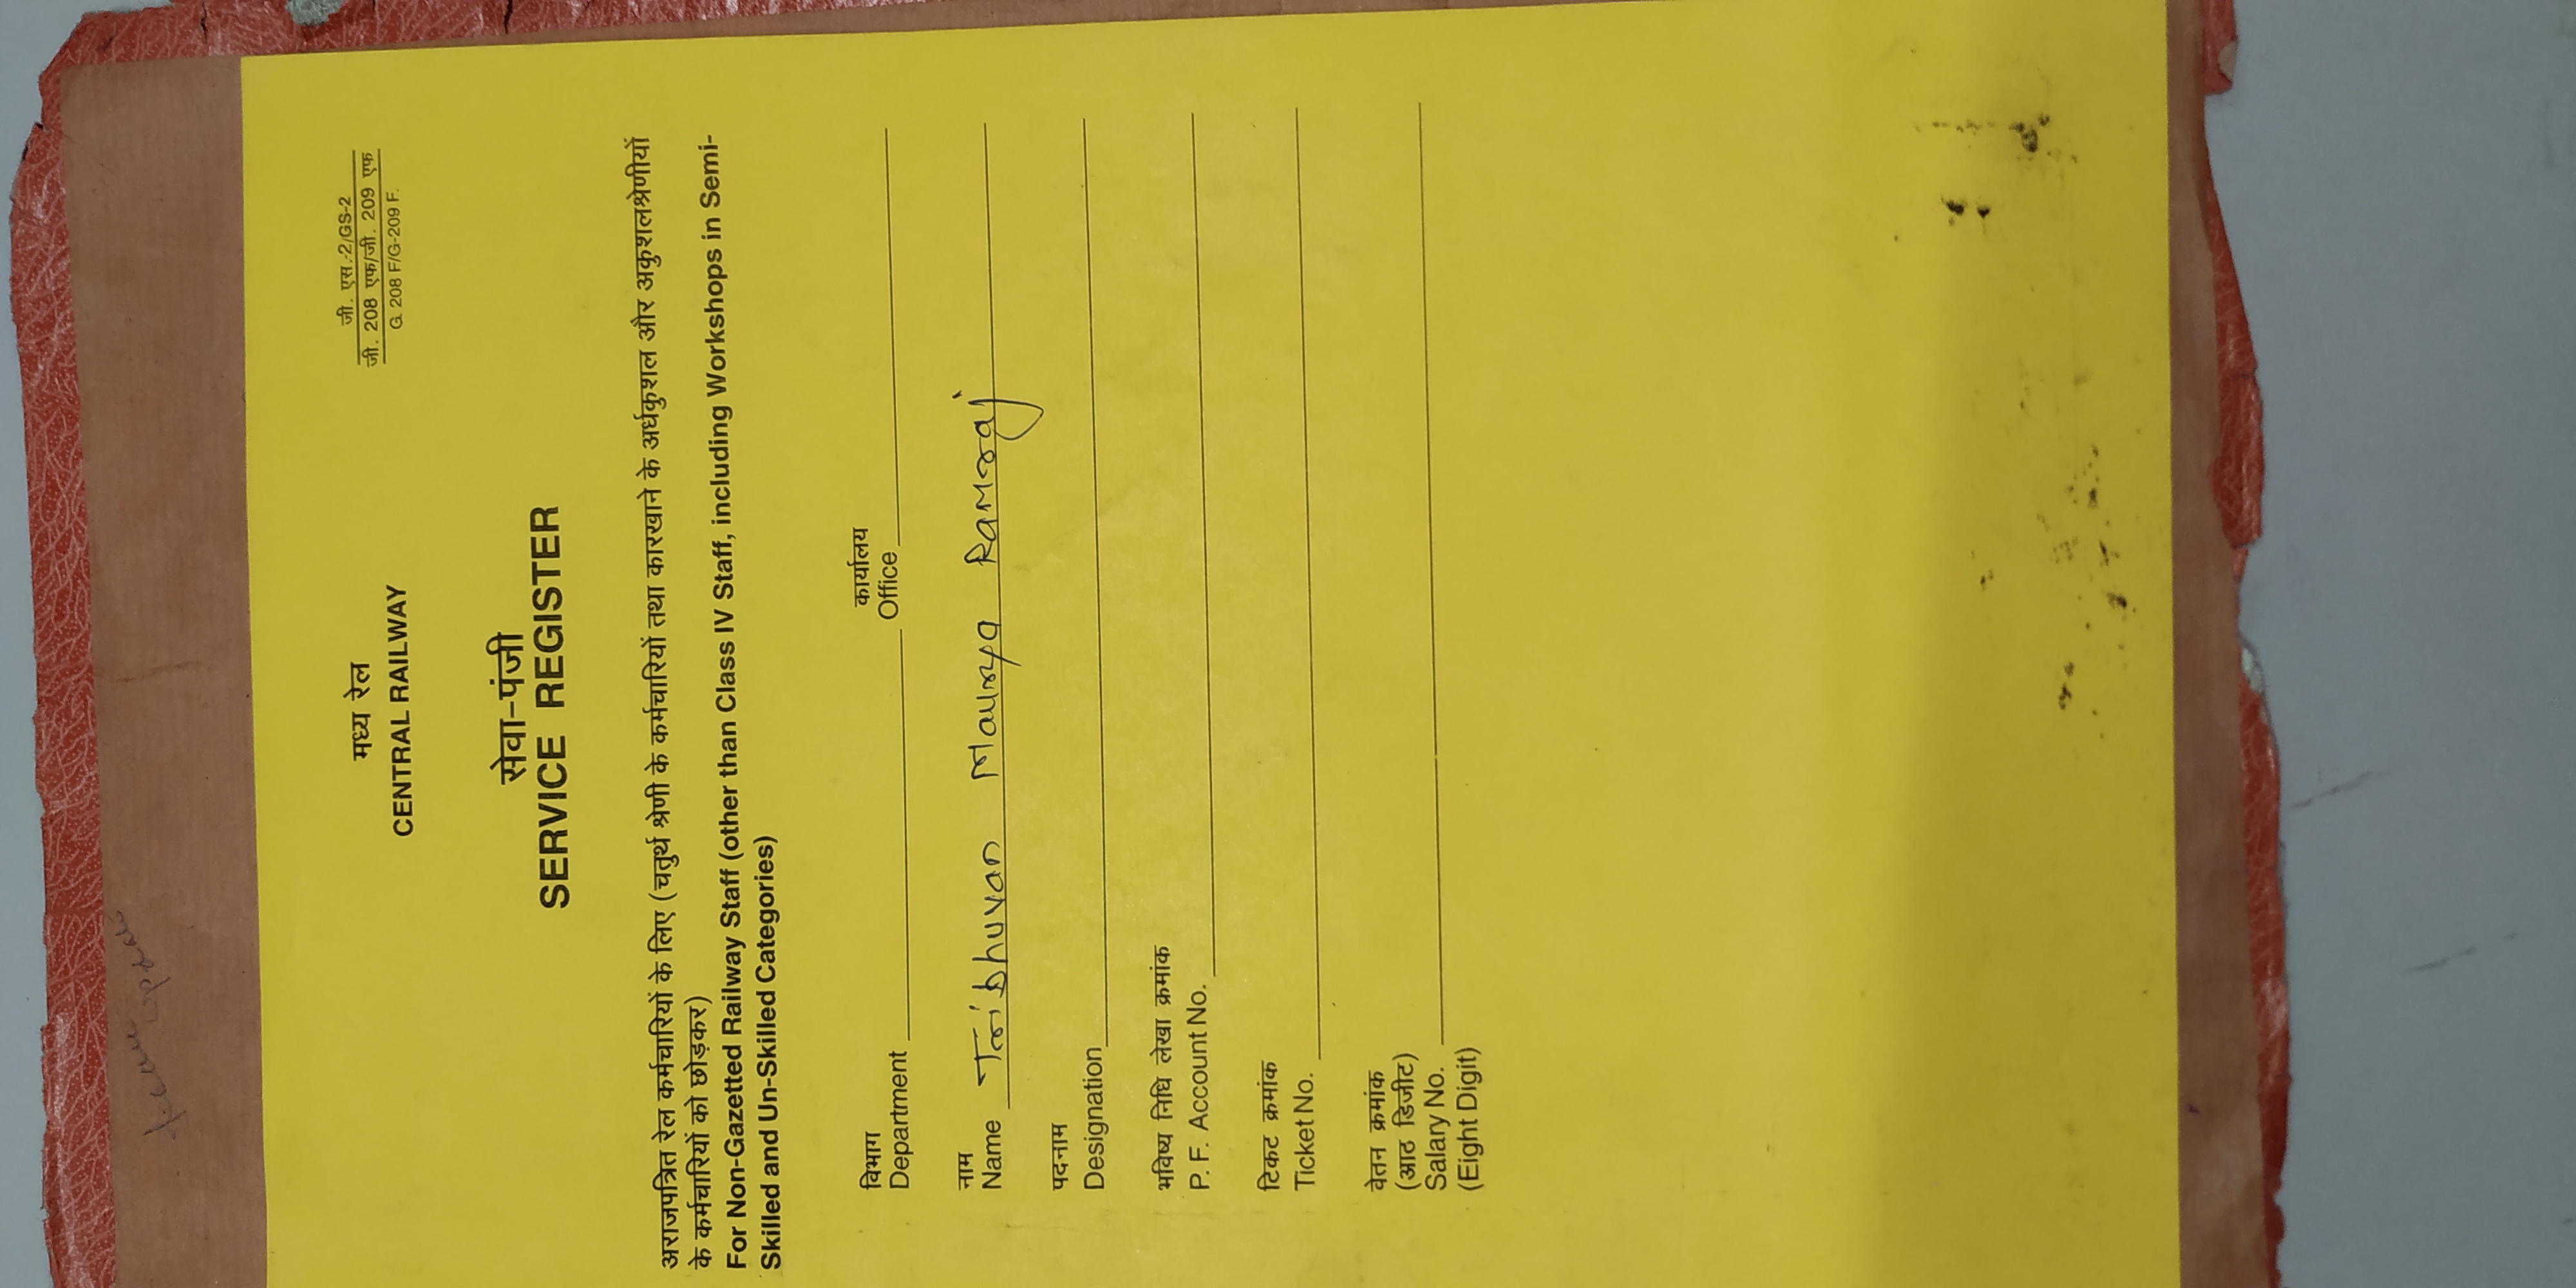 मध्य रेल
CENTRAL RAILWAY
जी. एस.-2/GS-2
जी. 208 एफ/जी. 209 एफ
G. 208 F/G-209 F.
सेवा-पंजी
SERVICE REGISTER
अराजपत्रित रेल कर्मचारियों के लिए (चतुर्थ श्रेणी के कर्मचारियों तथा कारखाने के अर्धकुशल और अकुशलश्रेणीयों
के कर्मचारियों को छोड़कर)
For Non-Gazetted Railway Staff (other than Class IV Staff, including Workshops in Semi-
Skilled and Un-Skilled Categories)
विभाग कार्यालय
Department Office
नाम
Name Tribhuvan Maurya Ramraj
पदनाम
Designation
भविष्य निधि लेखा क्रमांक
P. F. Account No.
टिकट क्रमांक
Ticket No.
वेतन क्रमांक
(आठ डिजीट)
Salary No.
(Eight Digit)